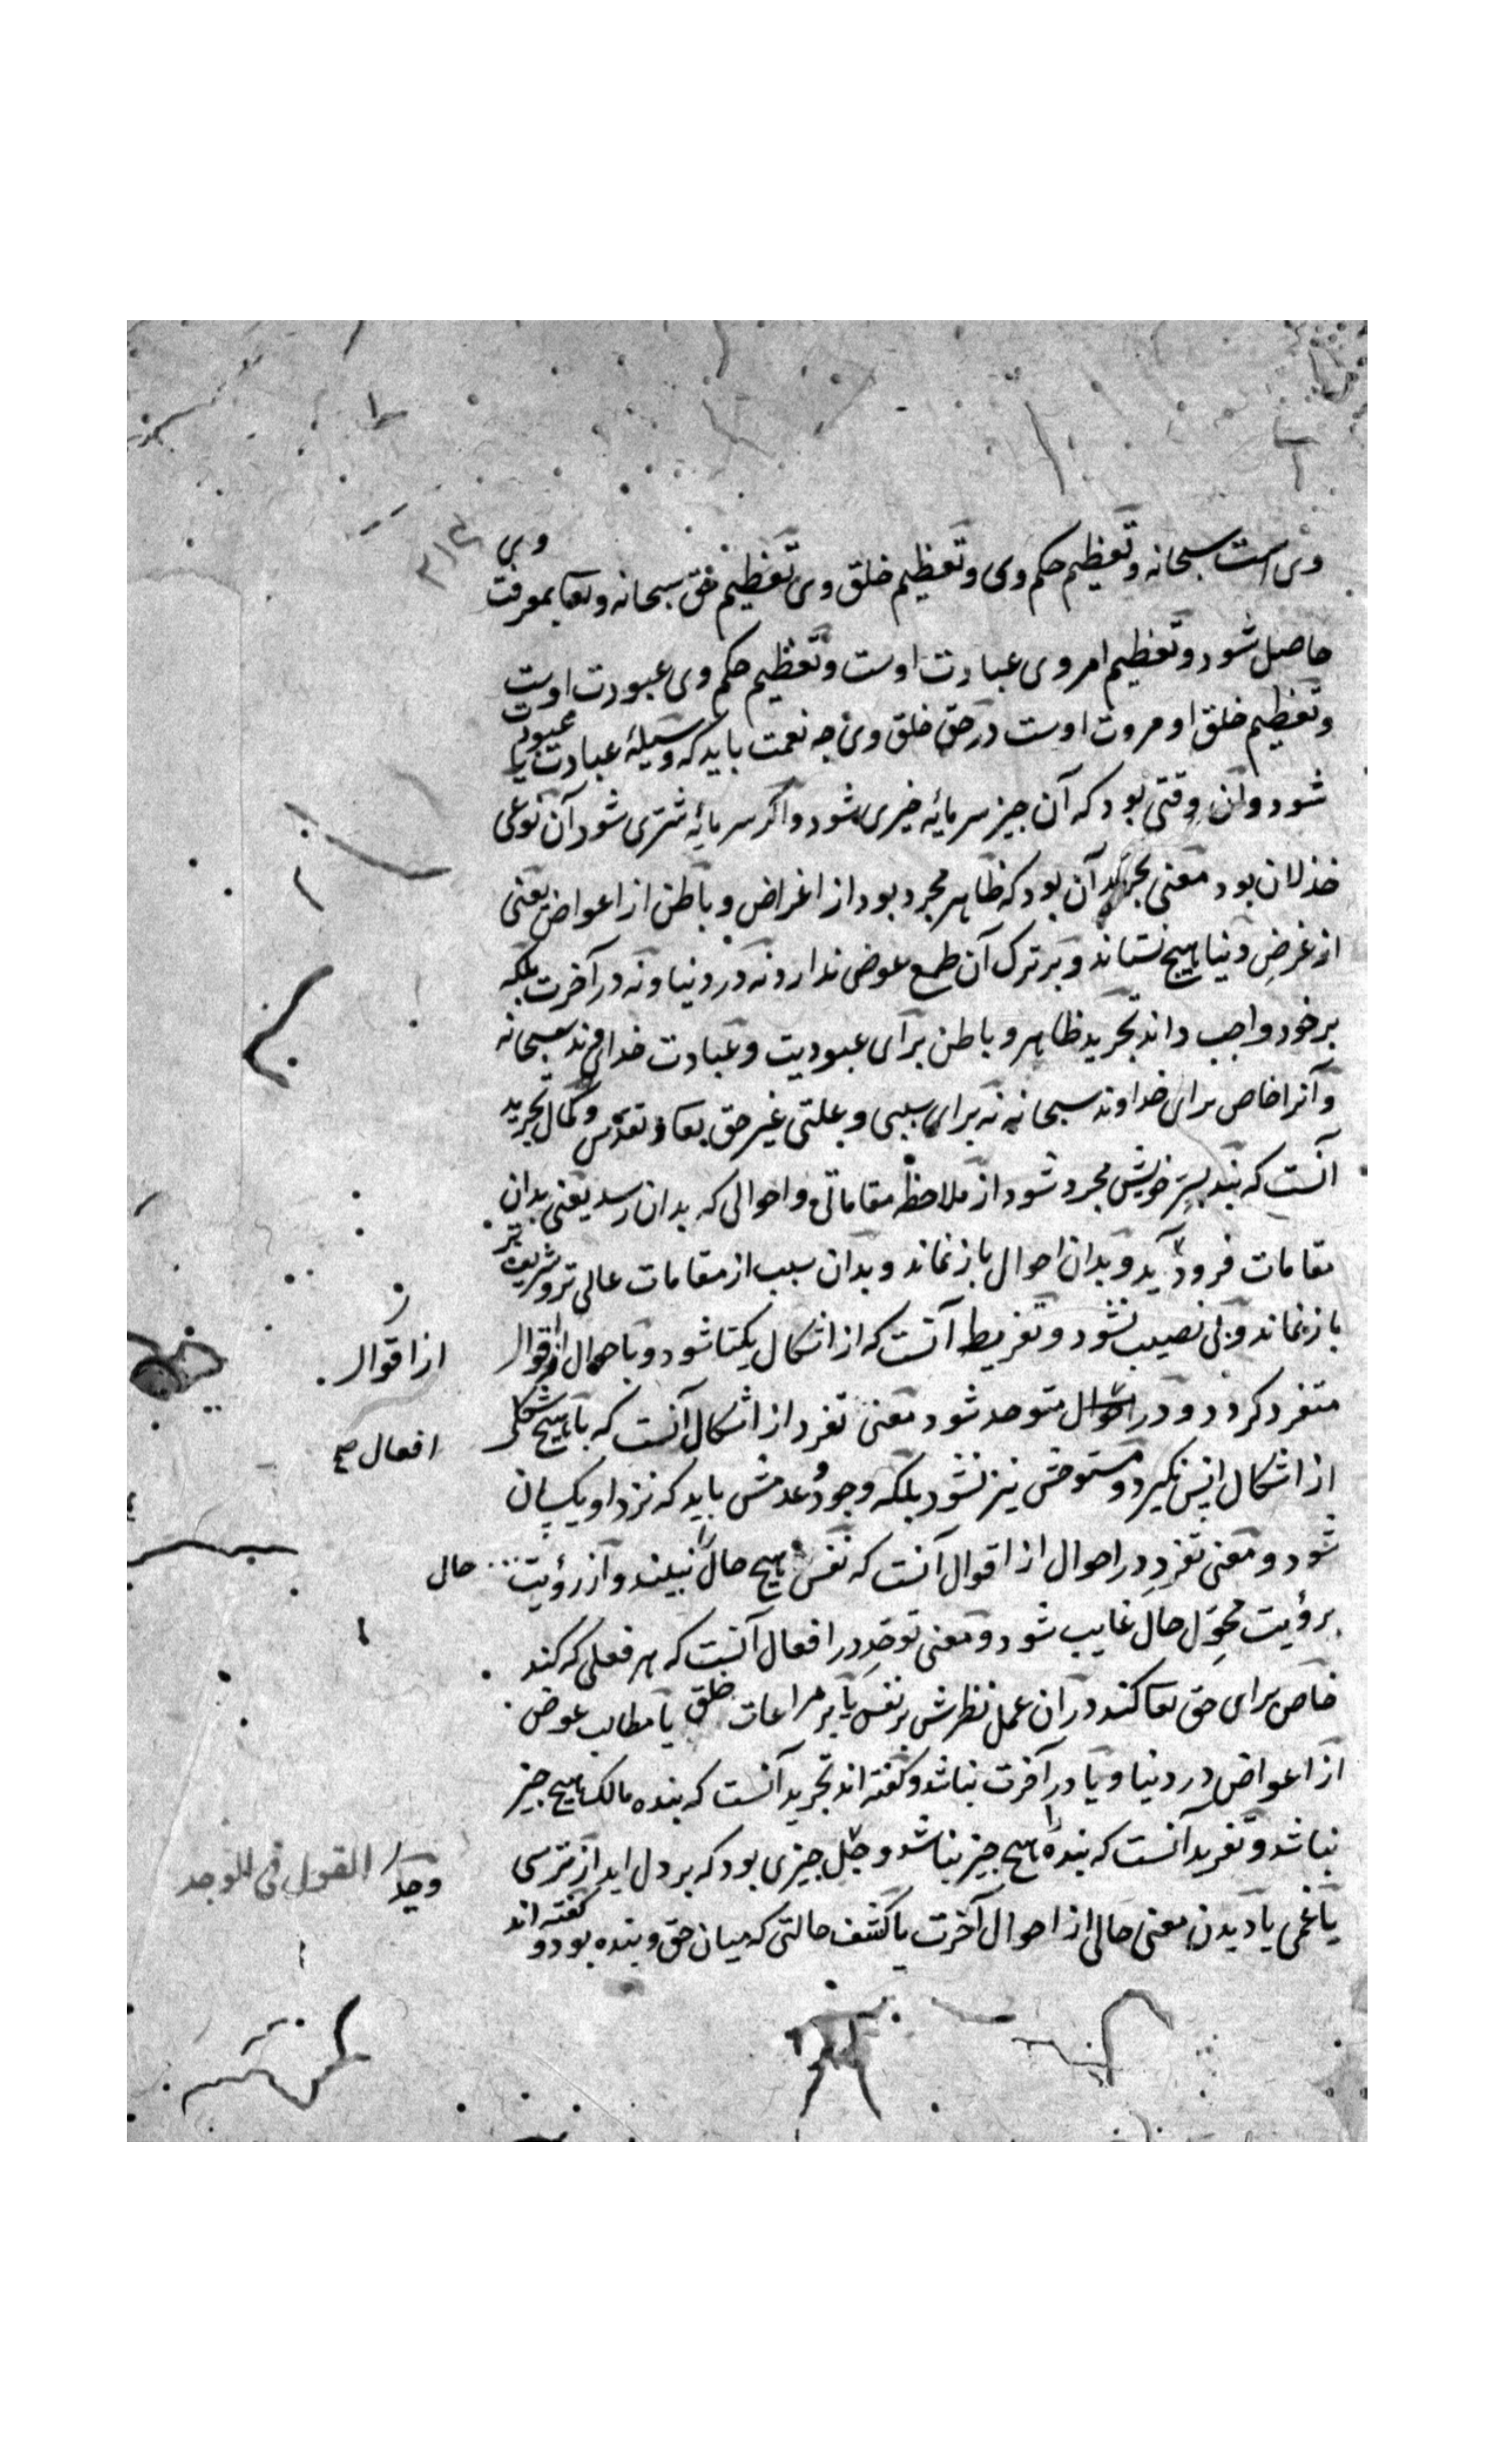 وی است سبحانه و تعظیم حکم وی و تعظیم خلق وی تعظیم حق سبحانه وتعا بمعرفت وی
حاصل شود و تعظیم امر وی عبادت اوست و تعظیم حکم وی عبودت اوست
و تعظیم خلق او مروت اوست در حق خلق وی جه نعمت باید که وسیلهٔ عبادت یا عبودت
شود و آن وقتی بود که آن جیز سرمایهٔ خیری شود و اکر سرمایهٔ شری شود آن نوعی
خذلان بود معنی تجرید آن بود که ظاهر مجرد بود از اغراض و باطن از اعواض یعنی
از غرض دنیا هیچ نستاند و بر ترک آن طمع عوض ندارد نه در دنیا و نه در آخرت بلکه
بر خود واجب داند تجرید ظاهر و باطن برای عبودیت و عبادت خداوند سبحانه
و آنرا خاص برای خداوند سبحانه نه برای سببی و علتی غیر حق تعا و تقدس و کمال تجرید
آنست که بنده بسر خویش مجرد شود از ملاحظه مقاماتی و احوالی که بدان رسد یعنی بدان
مقامات فرود آید و بدان احوال باز نماند و بدان سبب از مقامات عالی تر و شریف تر
باز نماند و بی نصیب نشود و تفرید آنست که از اشکال یکتا شود و با حوال از اقوال
از اقوال
متفرد کردد و در احوال متوحد شود معنی تفرد از اشکال آنست که با هیچ شکلی
افعال صح
از اشکال انس نکیرد و مستوحش نیز نشود بلکه وجود و عدمش باید که نزد او یکسان
شود و معنی تفرد در احوال از اقوال آنست که نفس هیچ حال را نبیند و از رؤیت حال
برؤیت محول حال غایب شود و معنی توحد در افعال آنست که هر فعلی که کند
خاص برای حق تعا کند در آن عمل نظرش بر نفس یا بر مراعات خلق یا مطالب عوض
از اعواض در دنیا و یا در آخرت نباشد و کفته اند تجرید آنست که بنده مالک هیچ جیز
نباشد و تفرید آنست که بنده را هیچ جیز نباشد و جیزی بود که بر دل اید از ترسی
وجد القول فی الوجد
یا غمی یا دیدن معنی حالی از احوال آخرت یا کشف حالتی که میان حق و بنده بود و کفته اند